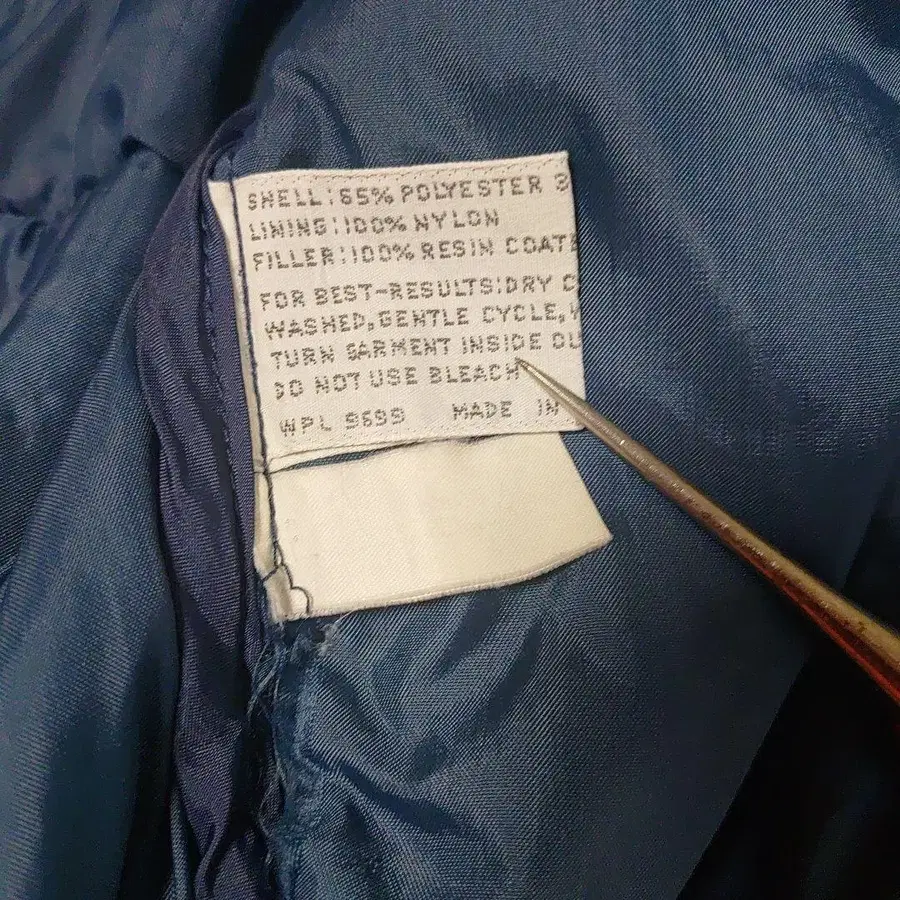 SHELL:65% POLYESTER 3
LINING:100% NYLON
FILLER:100% RESIN COATE
FOR BEST-RESULTS:DRY C
WASHED,GENTLE CYCLE,W
TURN GARMENT INSIDE OU
DO NOT USE BLEACH
WPL 9699 MADE IN